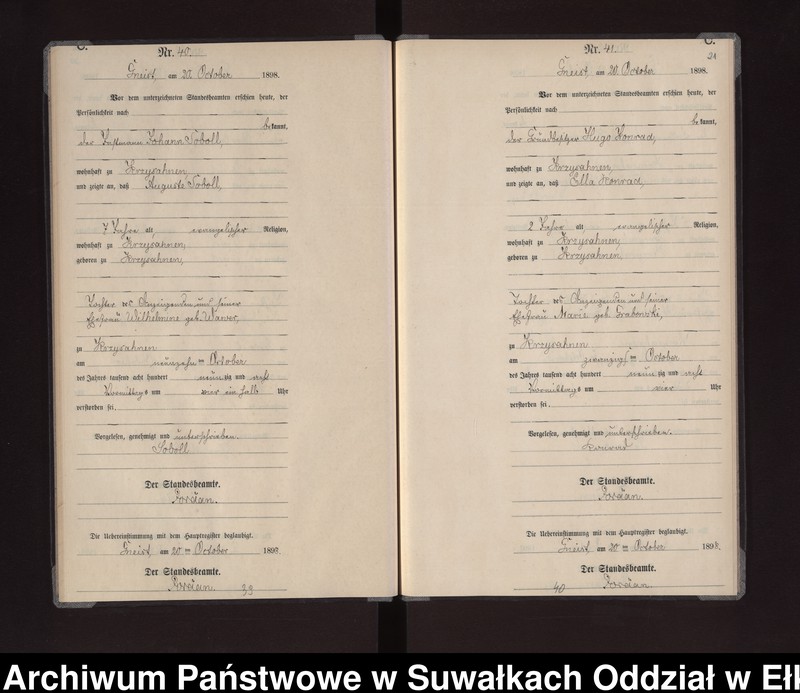 C.
Nr. 40.
am 20. October 1898.
Vor dem unterzeichneten Standesbeamten erschien heute, der
Persönlichkeit nach
bekannt,
der Johann Soboll,
wohnhaft zu Krzysahnen,
und zeigte an, daß Auguste Soboll,
7 Jahre alt, evangelischer Religion,
wohnhaft zu Krzysahnen,
geboren zu Krzysahnen,
Tochter des Anzeigenden und seiner
Ehefrau Wilhelmine geb.
zu Krzysahnen
am neunzehn ten October
des Jahres tausend acht hundert neunzig und acht
Vormittags um vier ein halb Uhr
verstorben sei.
Vorgelesen, genehmigt und unterschrieben.
Soboll
Der Standesbeamte.
Jordan.
Die Uebereinstimmung mit dem Hauptregister beglaubigt.
am 20 ten October 1898.
Der Standesbeamte.
Jordan.
39
C.
21
Nr. 41.
am 20. October 1898.
Vor dem unterzeichneten Standesbeamten erschien heute, der
Persönlichkeit nach
bekannt,
der Grundbesitzer Hugo Konrad,
wohnhaft zu Krzysahnen,
und zeigte an, daß Ella Konrad,
2 Jahre alt evangelischer Religion,
wohnhaft zu Krzysahnen,
geboren zu Krzysahnen,
Tochter des Anzeigenden und seiner
Ehefrau Marie geb. Grabowski,
zu Krzysahnen
am zwanzigs ten October
des Jahres tausend acht hundert neunzig und acht
Vormittags um vier Uhr
verstorben sei.
Vorgelesen, genehmigt und unterschrieben.
Konrad
Der Standesbeamte.
Jordan.
Die Uebereinstimmung mit dem Hauptregister beglaubigt.
am 20 ten October 1898.
Der Standesbeamte.
Jordan.
40
Archiwum Państwowe w Suwałkach Oddział w Ełk